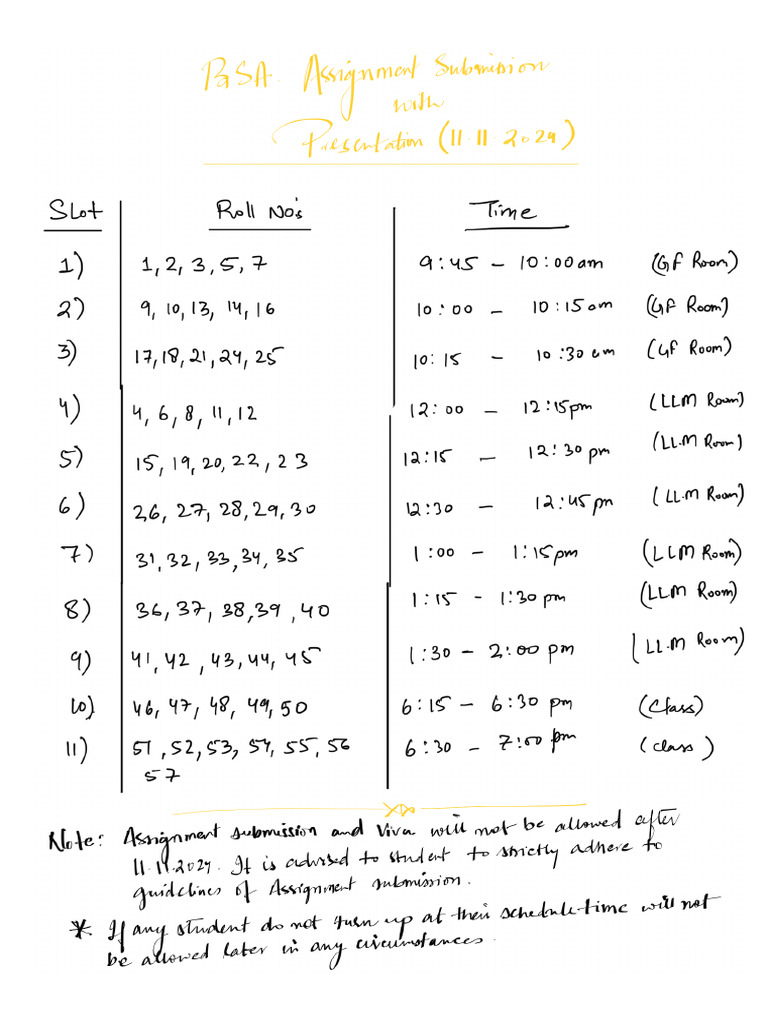 BSA. Assignment Submission
with
Presentation (11.11.2024)
Slot Roll No's Time
1) 1, 2, 3, 5, 7 9:45 - 10:00 am (GF Room)
2) 9, 10, 13, 14, 16 10:00 - 10:15 am (GF Room)
3) 17, 18, 21, 24, 25 10:15 - 10:30 am (GF Room)
4) 4, 6, 8, 11, 12 12:00 - 12:15 pm (LLM Room)
5) 15, 19, 20, 22, 23 12:15 - 12:30 pm (LLM Room)
6) 26, 27, 28, 29, 30 12:30 - 12:45 pm (LLM Room)
7) 31, 32, 33, 34, 35 1:00 - 1:15 pm (LLM Room)
8) 36, 37, 38, 39, 40 1:15 - 1:30 pm (LLM Room)
9) 41, 42, 43, 44, 45 1:30 - 2:00 pm (LLM Room)
10) 46, 47, 48, 49, 50 6:15 - 6:30 pm (Class)
11) 51, 52, 53, 54, 55, 56 6:30 - 7:00 pm (class)
57
Note: Assignment submission and Viva will not be allowed after
11.11.2024. It is advised to student to strictly adhere to
guidelines of Assignment submission.
* If any student do not turn up at their schedule-time will not
be allowed later in any circumstances.